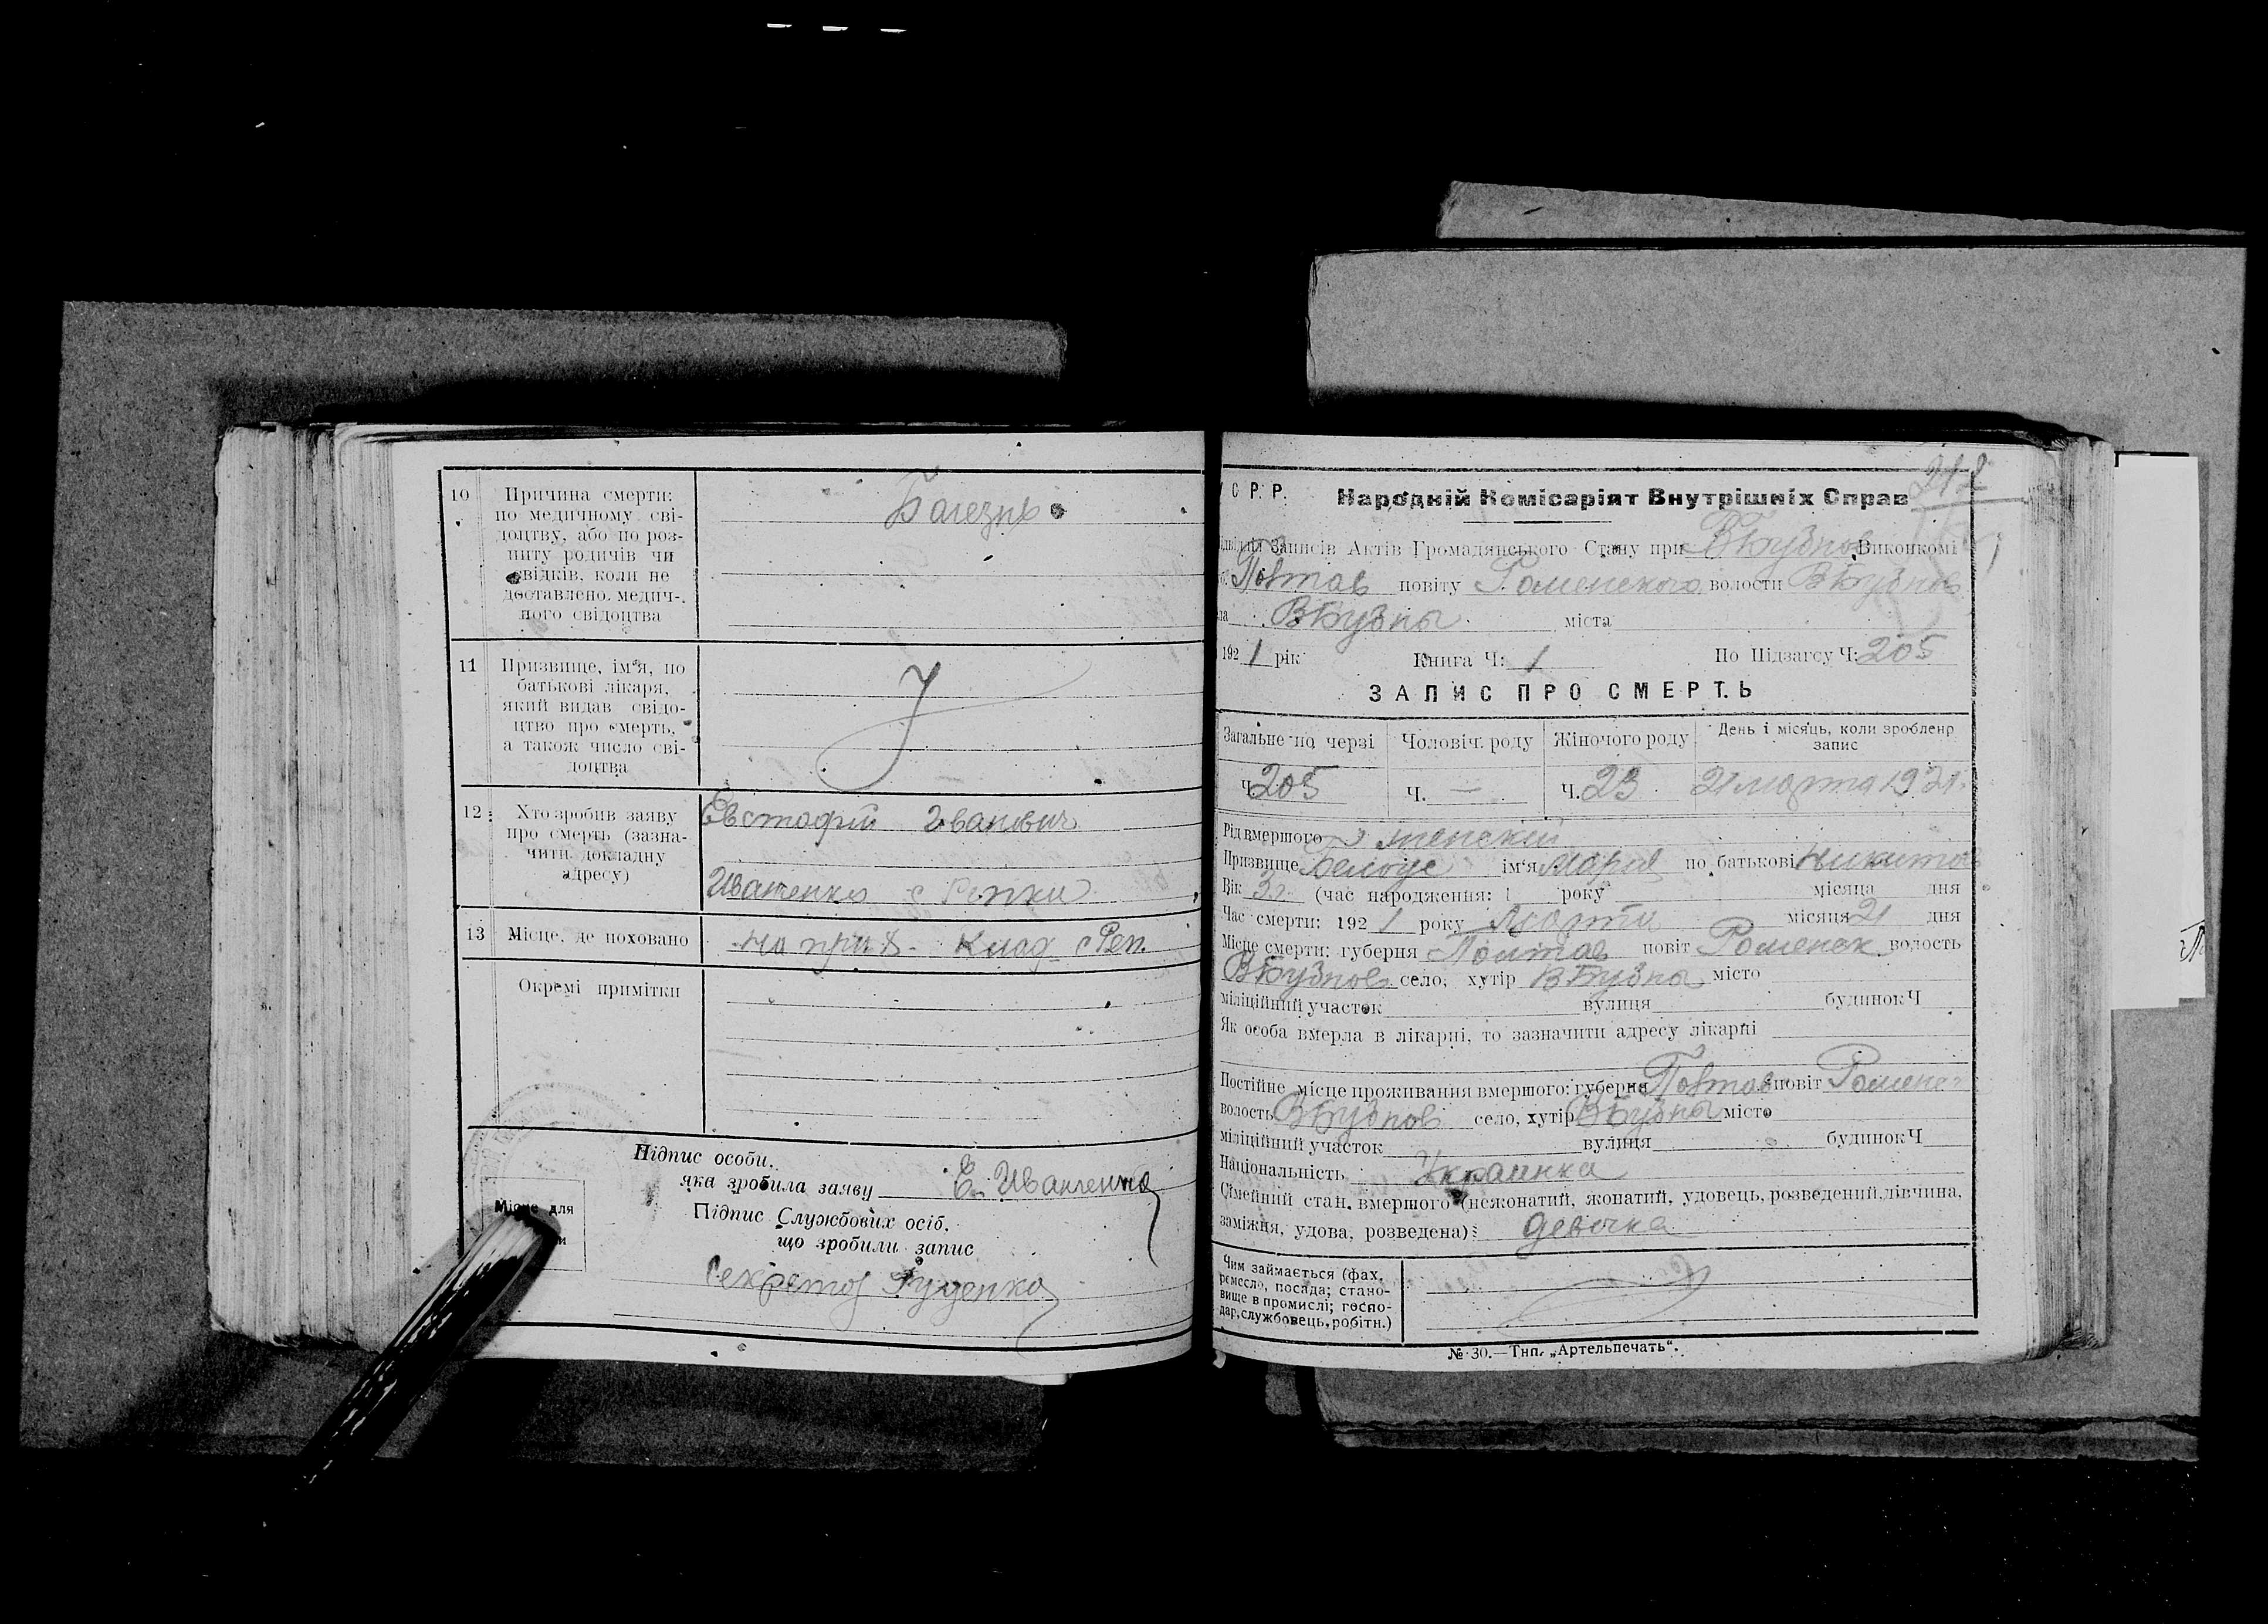 10 Причина смерти: по медичному сві-
доцтву, або по роз-
питу родичів чи
свідків, коли не
доставлено медич-
ного свідоцтва
Болезнь
11 Призвище, ім'я, по
батькові лікаря,
який видав свідо-
цтво про смерть,
а також число сві-
доцтва
12 Хто зробив заяву
про смерть (зазна-
чити докладну
адресу)
Евстафий Иванович
Иваненко с Репки
13 Місце, де поховано
на прих. Клад. с Реп.
Окремі примітки
Підпис особи,
яка зробила заяву Е. Иваненко
Підпис Службових осіб,
що зробили запис
Секретар Руденко
Місце для
212
У С Р Р. Народній Комісаріят Внутрішніх Справ
Записів Актів Громадянського Стану при ВБубнов Виконкомі
Полтав повіту Роменского волости ВБубнов
ВБубны міста
1921 рік Книга Ч: 1 По Підзагсу Ч: 205
ЗАПИС ПРО СМЕРТЬ
Загальне по черзі Чоловіч. роду Жіночого роду День і місяць, коли зроблено
запис
Ч. 205 Ч. — Ч. 23 21 марта 1921
Рід вмершого женский
Призвище Белоус ім'я Мария по батькові Никитов
Вік 3 г. (час народження: 1 року місяца дня
Час смерти: 1921 року Марта місяця 21 дня
Місце смерти: губерня Полтав повіт Роменск волость
ВБубнов село, хутір ВБубны місто
міліційний участок вулиця будинок Ч
Як особа вмерла в лікарні, то зазначити адресу лікарні
Постійне місце проживання вмершого: губерня Полтав повіт Роменск
волость ВБубнов село, хутір ВБубны місто
міліційний участок вулиця будинок Ч
Національність Украинка
Сімейний стан вмершого (нежонатий, жонатий, удовець, розведений, дівчина,
заміжня, удова, розведена): девочка
Чим займається (фах,
ремесло, посада; стано-
вище в промислі; госпо-
дар, службовець, робітн.)
№ 30.—Тип. „Артельпечать".